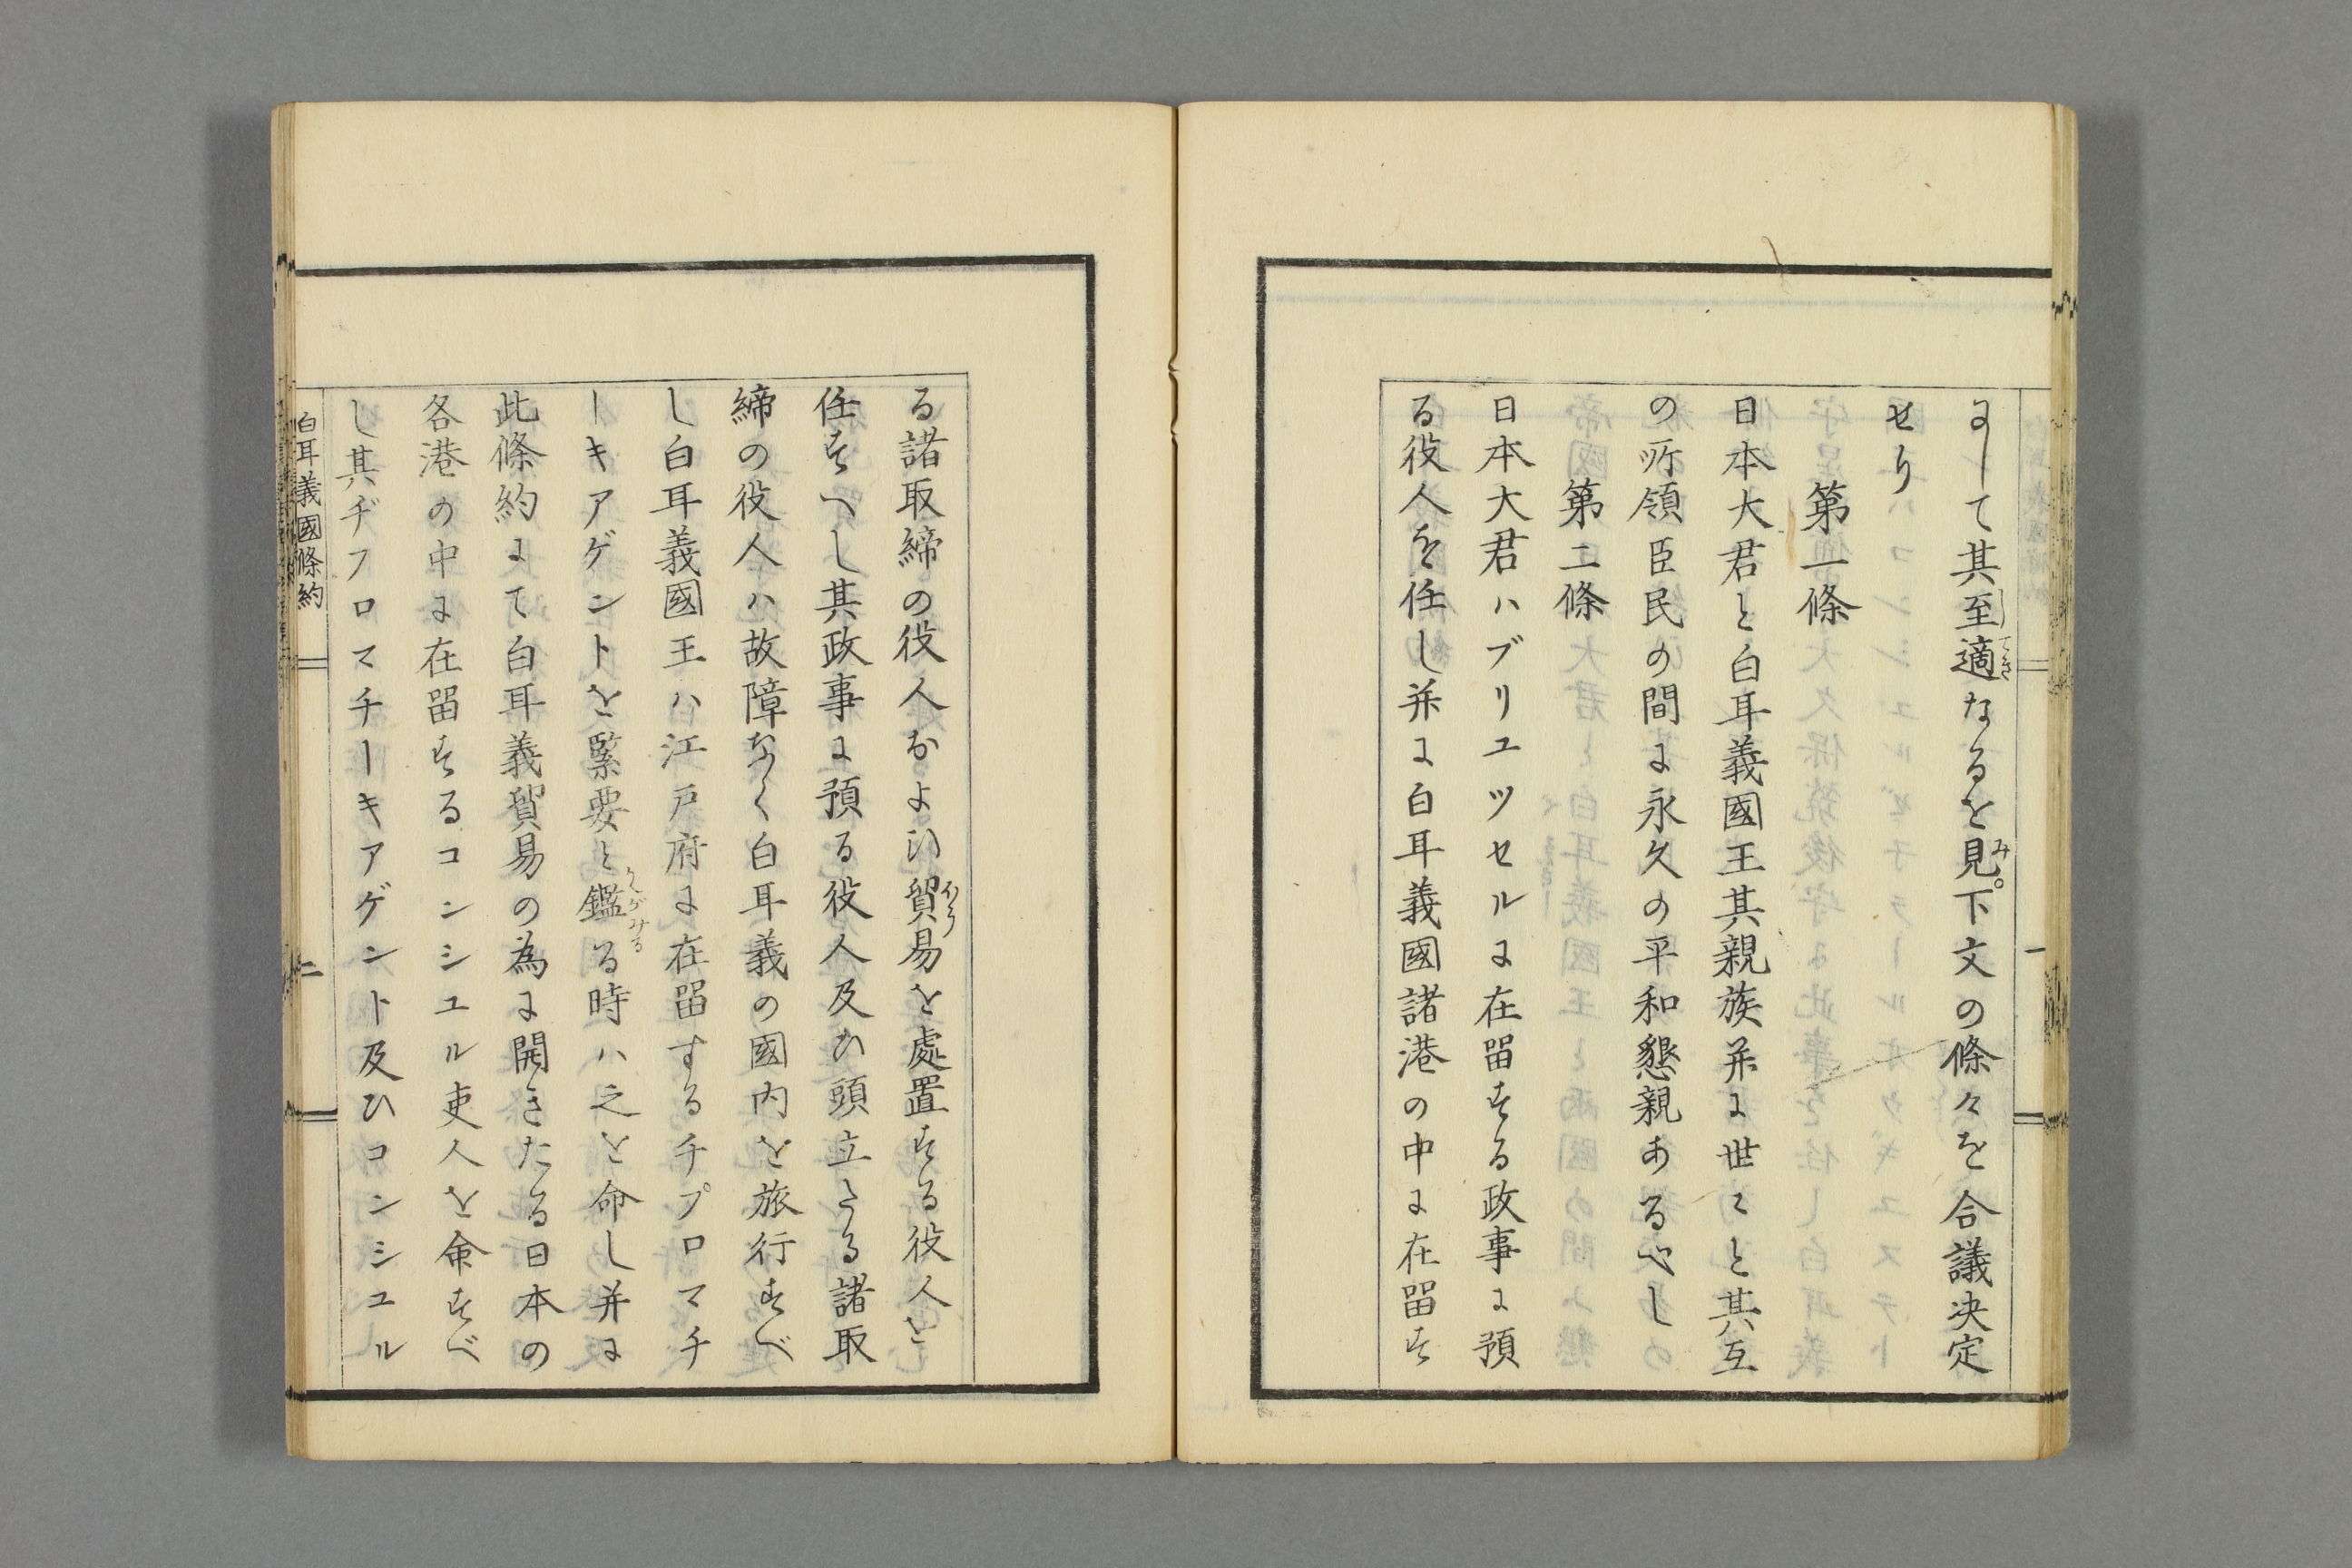 にして其至適なるを見下文の條々を合議决定
せり
第一條
日本大君と白耳義國王其親族并に世々と其互
の所領臣民の間に永久の平和懇親あるべし
第二條
日本大君ハブリユツセルに在留する政事に預
る役人を任し并に白耳義國諸港の中に在留す
る諸取締の役人および貿易を處置する役人を
任すへし其政事に預る役人及ひ頭立たる諸取
締の役人ハ故障なく白耳義の國内を旅行すべ
し白耳義國王ハ江戸府に在留するチプロマチ
ーキアゲントを緊要と鑑る時ハ之を命し并に
此條約にて白耳義貿易の為に開きたる日本の
各港の中に在留するコンシユル吏人を命すべ
し其ヂフロマチーキアゲント及ひコンシユル
白耳義國條約
二